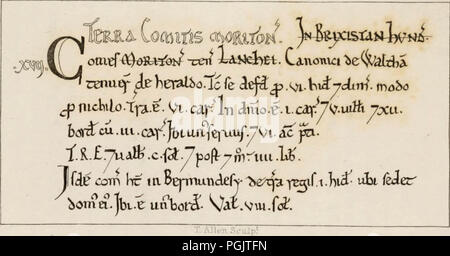 TERRA COMITIS MORITON̄. IN BRIXISTAN HVND̄.
.XVII. Comes MORITON̄ ten̄ LANCHEI. Canonici de Walthā
tenuer̄ de heraldo. Tc̄ se defd̄ ꝓ .VI. hid̄ 7 dim̄. modo
ꝓ nichilo. Tr̄a .ē. VI. car̄. In dn̄io .ē. I. car̄. 7 V. uilł 7 XII.
bord̄ cū .III. car̄. Ibi un̄ seruus. 7 VI. ac̄ p̄ti.
T.R.E. 7 ualb̄ .C. sol̄. 7 post 7 m̄. IIII. lib̄.
Isdē com̄ ht̄ in Bermundesy de tr̄a regis .I. hid̄. ubi sedet
dom̄ ei'. Ibi .ē. un̄ bord̄. Val̄. VIII. sol̄.
T. Allen Sculpᵗ.
alamy
PGJTFN